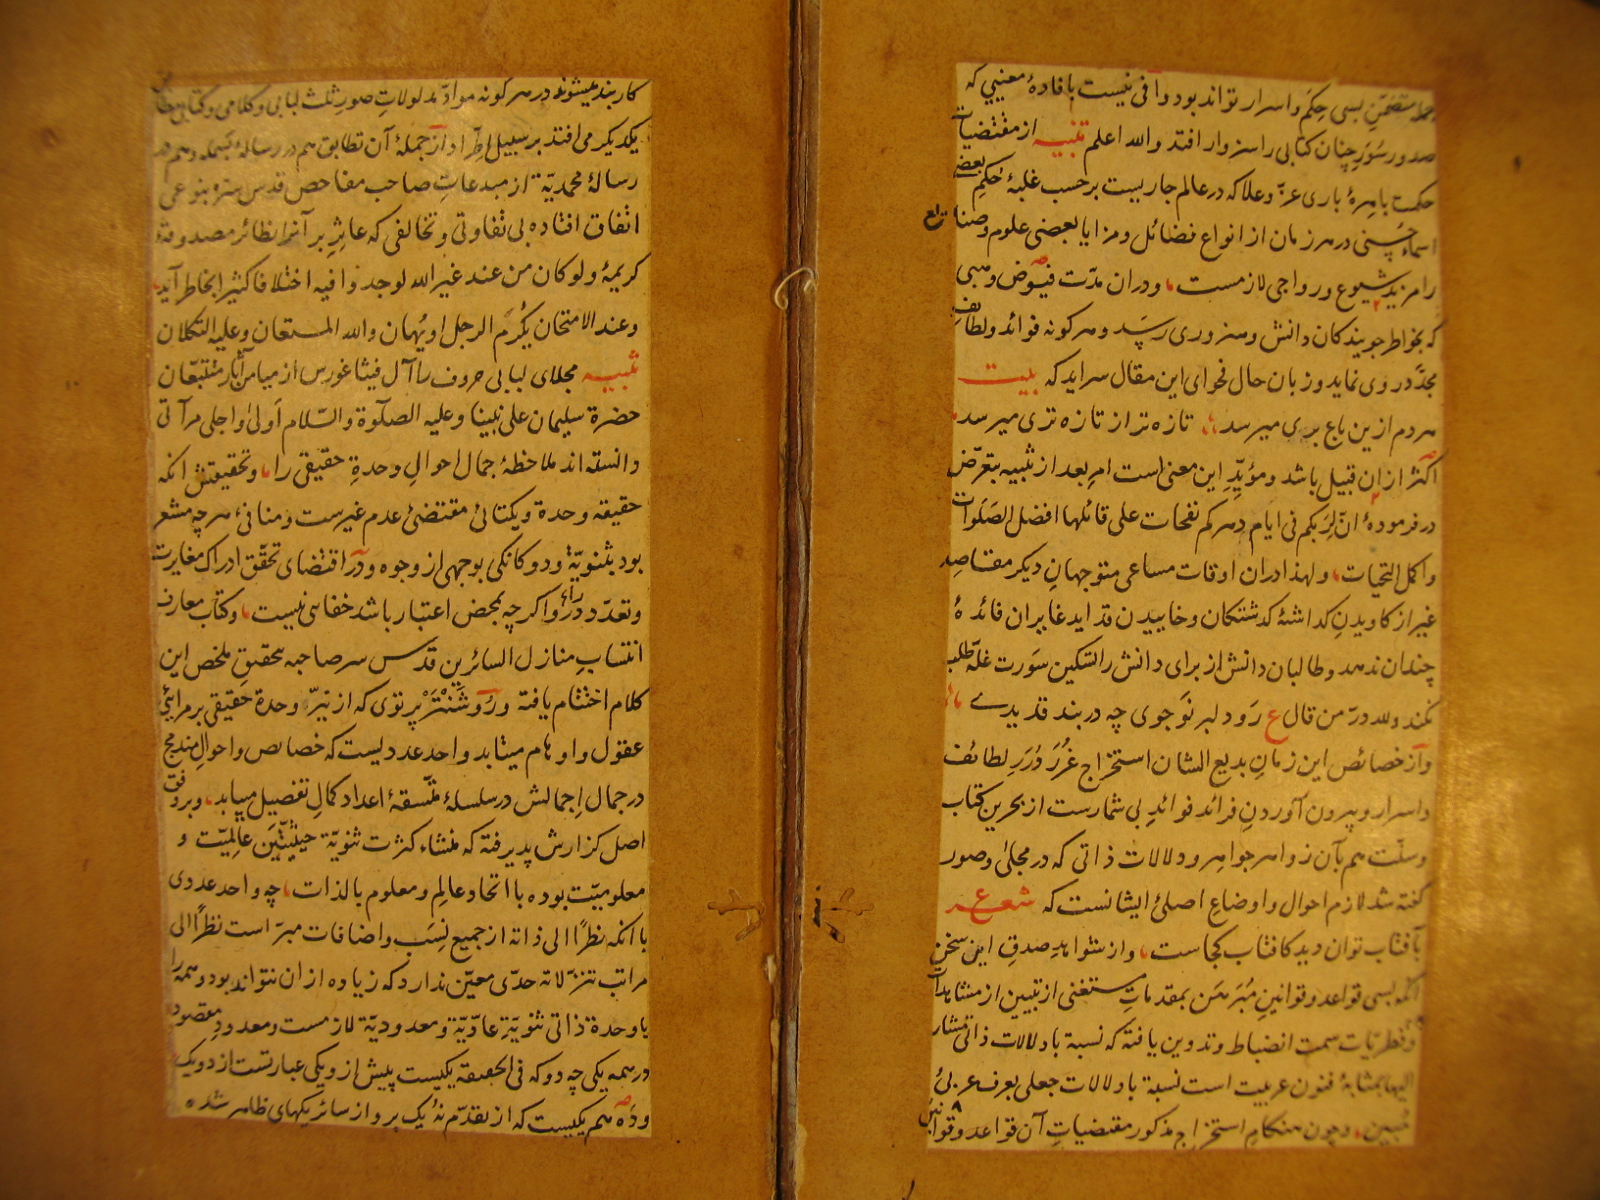 جمله متضمّن بسی حِکَم و اسرار تواند بود وافی نیست بافادهٔ معنیی که
صدور سُوَرِ چنان کتابی را سزوار افتد والله اعلم تنبیه از مقتضیات
حکمت باهرهٔ باری عزّ وعلا که در عالم جاریست بر حسب غلبهٔ حکم بعضی
اسماء حسنی در هر زمان از انواع فضائل و مزایا بعضی علوم و صنائع
را مزید شیوع و رواجی لازمست و دران مدّت فیوض وهبی
که بخواطر جویندکان دانش و هنروری رسَد و هر کونه فوائد و لطائف
مجدّد روی نماید و زبان حال فحوای این مقال سراید که بیت
هر دم ازین باغ بری میرسد تازه تر از تازه تری میرسد
اکثر ازان قبیل باشد و مؤیّدِ این معنی است امرِ بعد از تنبیه بتعرّض
در فرمودهٔ انّ لِرَبکم فی ایام دهرکم نفحات علی قائلها افضل الصَلَوات
واکمل التحیات ولهذا دران اوقات مساعی متوجهانِ دیکر مقاصِد
غیر از کاویدنِ کذاشتهٔ کذشتکان و خاییدن قداید غابران فائدهٔ
چندان ندهد و طالبان دانش از برای دانش را تسکین سَورت غلّهٔ طلب
نکند ولله درّ من قال ع رَو دلبر نَو جوی چه در بند قدیدی
و از خصائص این زمانِ بدیع الشان استخراج غُرَر دُرَرِ لطائف
و اسرار و بیرون آوردنِ فرائد فوائدِ بی شمارست از بحرین کتاب
و سنّت هم بآن زواهر جواهر و دلالات ذاتی که در مجلئ وصور
کفته شد لازم احوال و اوضاعِ اصلئ ایشانست که شعر ع
بآفتاب توان دید کافتاب کجاست و از شواهدِ صدقِ این سخن
آنکه بسی قواعد و قوانینِ مُبَرهَن بمقدماتِ مستغنی از تبیین از مشاهدات
و فطریّات سمت انضباط و تدوین یافته که نسبة با دلالات ذاتی مشار
الیها بمثابهٔ فنون عربیت است نسبة با دلالات جعلی بعرف عربئ
مُبین و چون هنکامِ استخراج مذکور مقتضیاتِ آن قواعد و قوانین
کاربند میشوند در هر کونه مواد مدلولاتِ صورِ ثلث لبابی و کلامی و کتابی مطابق
یکدیکر می افتد بر سبیل اطّراد و از جملهٔ آن تطابق هم در رسالهٔ بسمله و هم در
رسالهٔ محمدیّة از مبدعات صاحب مفاحص قدس سره بنوعی
اتفاق افتاده بی تفاوتی و تخالفی که عاثر بر آنرا نظائر مصدوقهٔ
کریمهٔ ولو کان من عند غیر الله لوجدوا فیه اختلافا کثیرا بخاطر آید
وعند الامتحان یُکرم الرجل او یُهان والله المستعان وعلیه التکلان
تنبیه مجلای لبابی حروف را آل فیثاغورس از میامن آثار متتبّعان
حضرة سلیمان علی نبینا وعلیه الصلٰوة والسّلام اَولی و اجلی مرآتی
دانسته اند ملاحظهٔ جمال احوالِ وحدةِ حقیقی را و تحقیقش انکه
حقیقه وحدة و یکتائی مقتضئ عدم غیرست و منافئ هر چه مشعر
بود بثنویّة و دوکانکی بوجهی از وجوه و در اقتضای تحقّق ادراک مغایرت
و تعدّد درا و اکر چه بمحض اعتبار باشد خفاسی نیست و کتاب معارف
انتسابِ منازل السائرین قدس سر صاحبه بتحقیق ملخص این
کلام اختتام یافته و روشنتَرْ پرتوی که از نیّر وحدة حقیقی بر مرائئ
عقول و اوهام میتابد واحد عددیست که خصائص و احوالِ مندمج
در جمال اِجمالش در سلسلهٔ متّسقهٔ اعداد کمالِ تفصیل میابد و بر وفق
اصل کزارش پذیرفته که منشاء کثرت ثنویّة حیثیّتَین عالِمیّت و
معلومیّت بوده با اتحاد عالِم و معلوم بالذات چه واحد عددی
با انکه نظراً الی ذاته از جمیع نِسَب و اضافات مبرّاست نظراً الی
مراتب تنزّلاته حدّی معیّن ندارد که زیاده از ان نتواند بود و همه را
با وحدة ذاتی ثنویّةِ عادّیّة و معدودیّة لازمست و معدودِ مقصود
در همه یکی چه دو که فی الحقیقه یکیست پیش از و یکی عبارتست از دو یک
و دَه هم یکیست که از تقدّم نُه یک بر و از سائر یکهای ظاهر شده